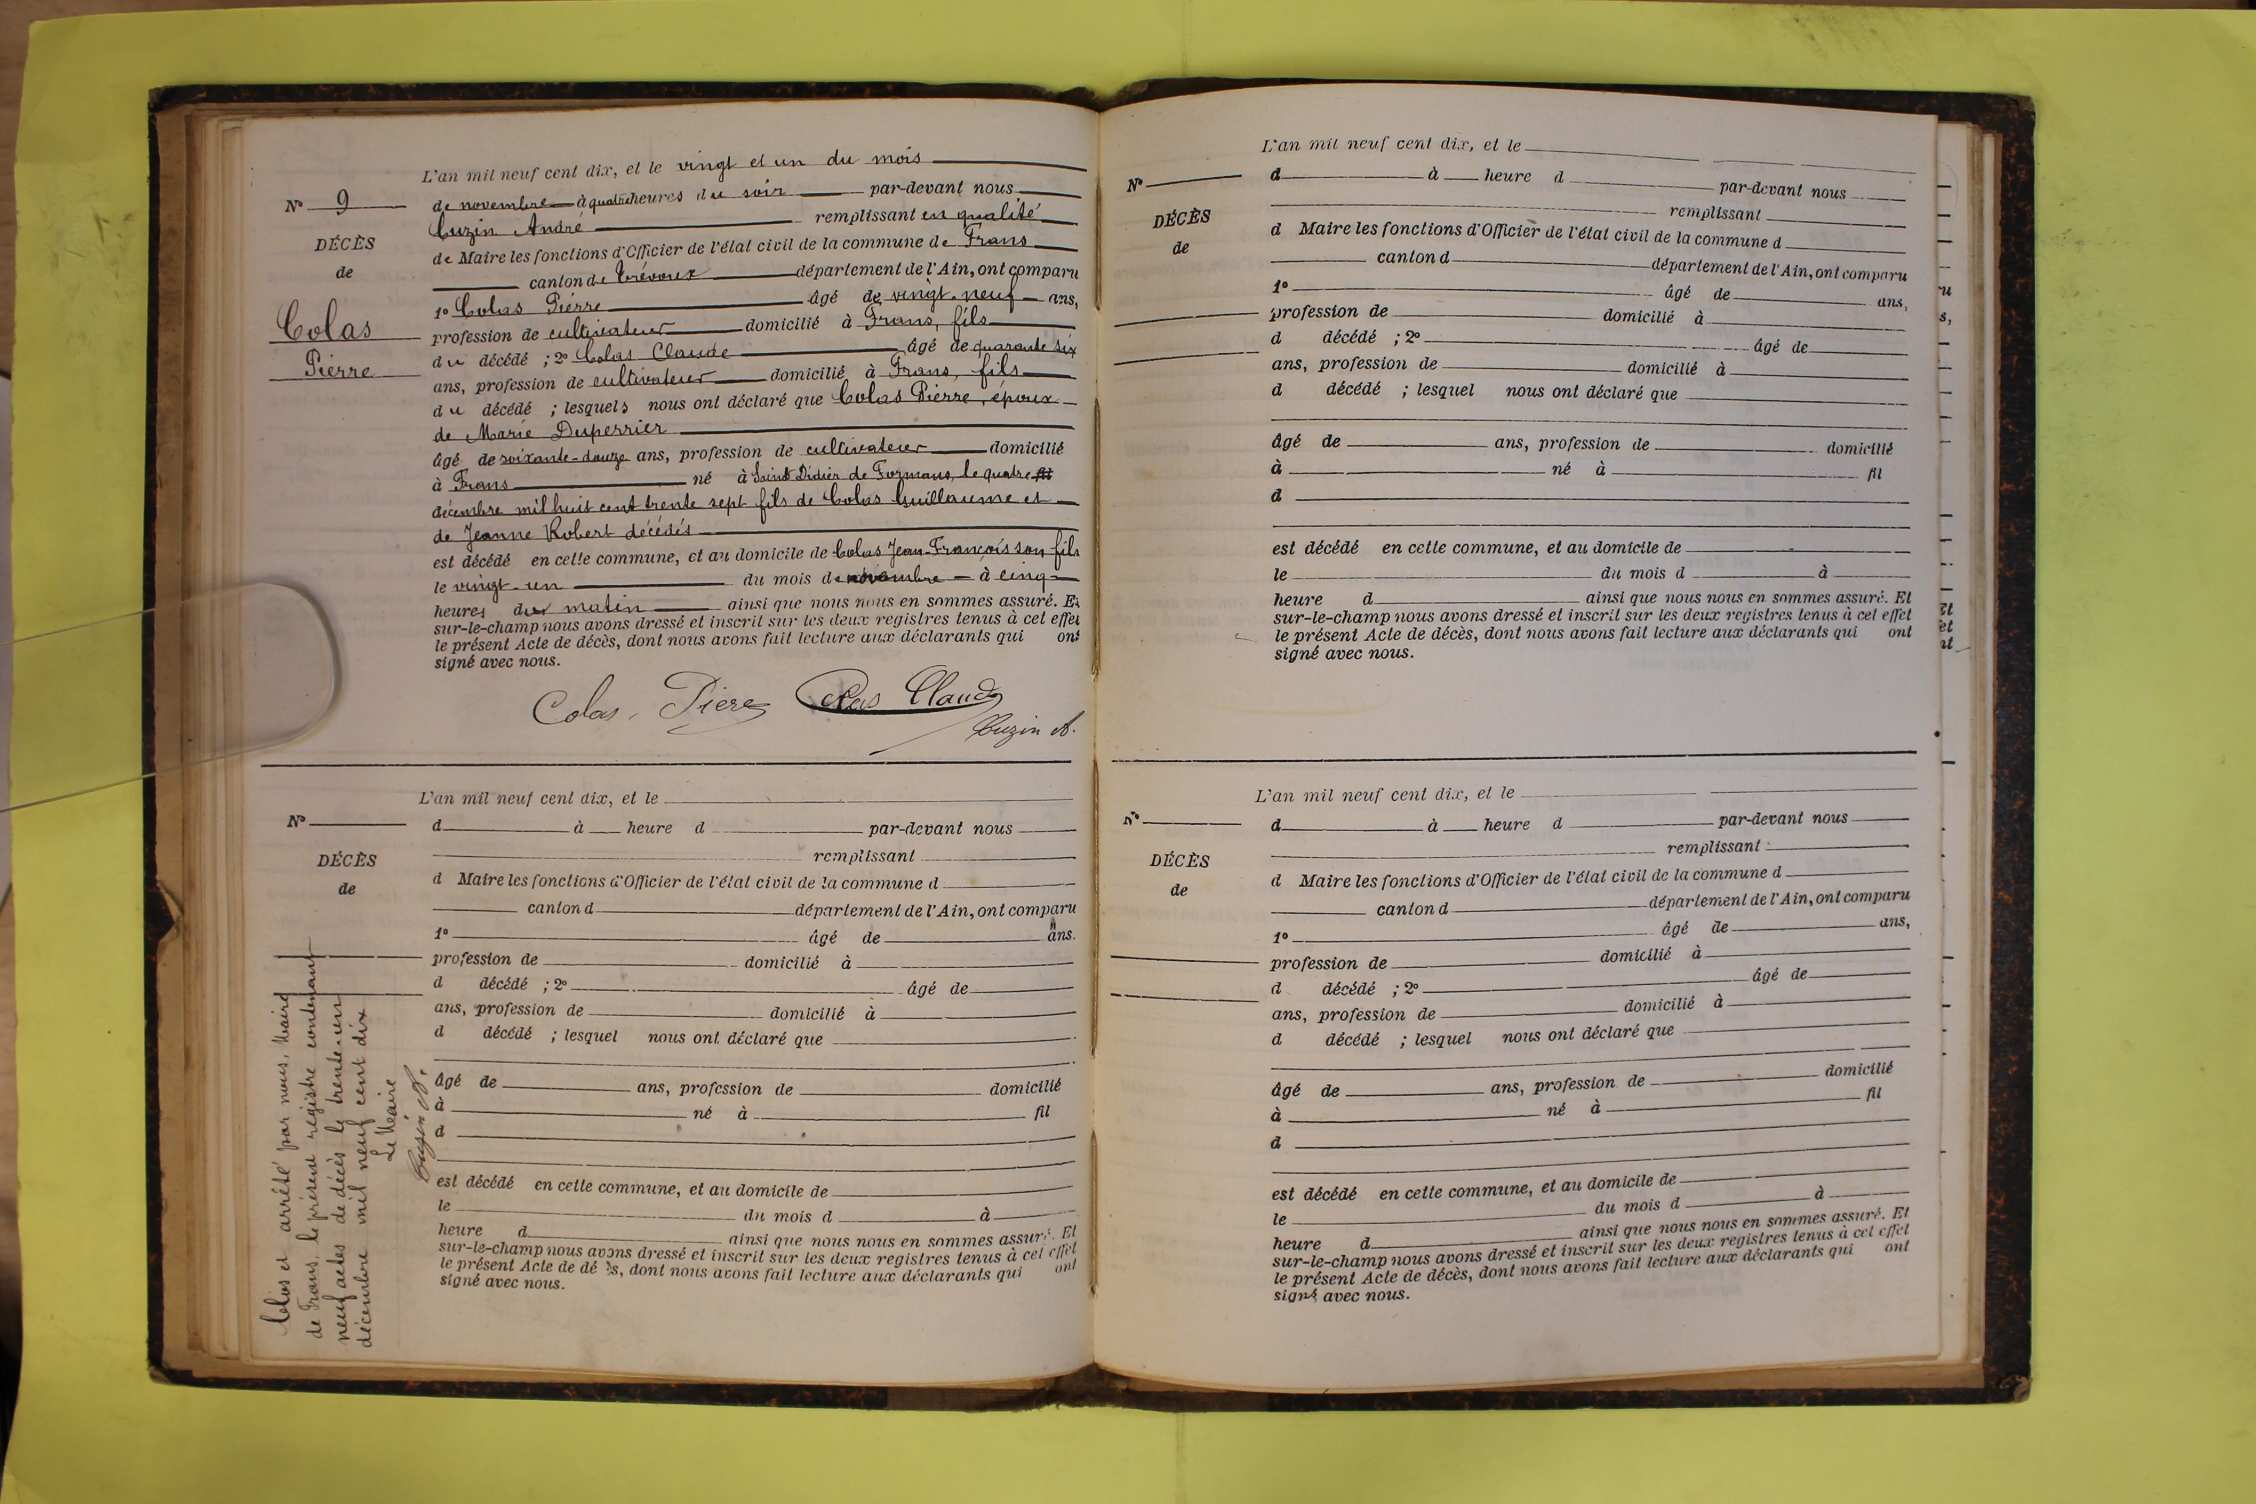 L'an mil neuf cent dix, et le vingt et un du mois
N° 9
de novembre à quatre heures du soir par-devant nous
Cuzin André remplissant en qualité
DÉCÈS
de Maire les fonctions d'Officier de l'état civil de la commune de Frans
de
canton de Trévoux département de l'Ain, ont comparu
1° Colas Pierre âgé de vingt-neuf ans,
Colas
profession de cultivateur domicilié à Frans, fils
du décédé ; 2° Colas Claude âgé de quarante six
Pierre
ans, profession de cultivateur domicilié à Frans, fils
du décédé ; lesquels nous ont déclaré que Colas Pierre, époux
de Marie Duperrier
âgé de soixante-douze ans, profession de cultivateur domicilié
à Frans né à Saint Didier de Formans, le quatre
décembre mil huit cent trente sept fils de Colas Guillaume et
de Jeanne Robert décédés
est décédé en cette commune, et au domicile de Colas Jean-François son fils
le vingt-un du mois de novembre à cinq
heures du matin ainsi que nous nous en sommes assuré. Et
sur-le-champ nous avons dressé et inscrit sur les deux registres tenus à cet effet
le présent Acte de décès, dont nous avons fait lecture aux déclarants qui ont
signé avec nous.
Colas, Piere Colas Claude
Cuzin A.
L'an mil neuf cent dix, et le
N°
d à heure d par-devant nous
remplissant
DÉCÈS
d Maire les fonctions d'Officier de l'état civil de la commune d
de
canton d département de l'Ain, ont comparu
1° âgé de ans.
profession de domicilié à
d décédé ; 2° âgé de
ans, profession de domicilié à
d décédé ; lesquel nous ont déclaré que
âgé de ans, profession de domicilié
à né à fil
d
est décédé en cette commune, et au domicile de
le du mois d à
heure d ainsi que nous nous en sommes assuré. Et
sur-le-champ nous avons dressé et inscrit sur les deux registres tenus à cet effet
le présent Acte de décès, dont nous avons fait lecture aux déclarants qui ont
signé avec nous.
Clos et arrêté par nous, Maire
de Frans, le présent registre contenant
neuf actes de décès le trente-un
décembre mil neuf cent dix
Le Maire
Cuzin A.
L'an mil neuf cent dix, et le
N°
d à heure d par-devant nous
remplissant
DÉCÈS
d Maire les fonctions d'Officier de l'état civil de la commune d
de
canton d département de l'Ain, ont comparu
1° âgé de ans,
profession de domicilié à
d décédé ; 2° âgé de
ans, profession de domicilié à
d décédé ; lesquel nous ont déclaré que
âgé de ans, profession de domicilié
à né à fil
d
est décédé en cette commune, et au domicile de
le du mois d à
heure d ainsi que nous nous en sommes assuré. Et
sur-le-champ nous avons dressé et inscrit sur les deux registres tenus à cet effet
le présent Acte de décès, dont nous avons fait lecture aux déclarants qui ont
signé avec nous.
L'an mil neuf cent dix, et le
N°
d à heure d par-devant nous
remplissant
DÉCÈS
d Maire les fonctions d'Officier de l'état civil de la commune d
de
canton d département de l'Ain, ont comparu
1° âgé de ans,
profession de domicilié à
d décédé ; 2° âgé de
ans, profession de domicilié à
d décédé ; lesquel nous ont déclaré que
âgé de ans, profession de domicilié
à né à fil
d
est décédé en cette commune, et au domicile de
le du mois d à
heure d ainsi que nous nous en sommes assuré. Et
sur-le-champ nous avons dressé et inscrit sur les deux registres tenus à cet effet
le présent Acte de décès, dont nous avons fait lecture aux déclarants qui ont
signé avec nous.